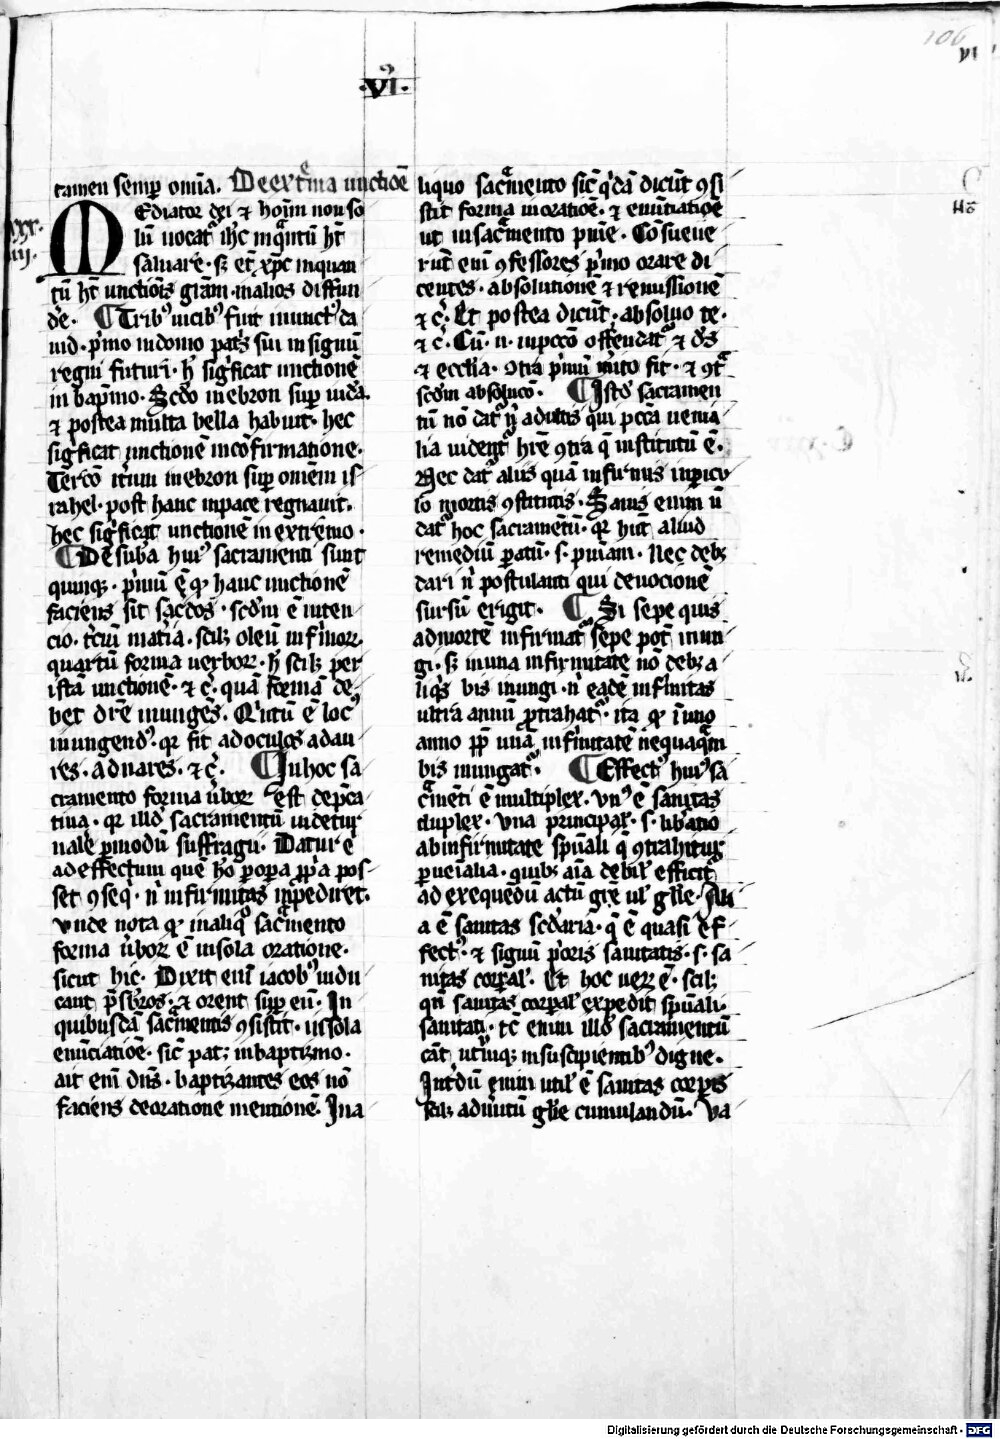 106
vi
.vi.
tamen semꝑ om̄ia. De extͣma unctiōe
xxx
iij.
MEdiator dei ⁊ hoı̄m non so
lū uocatᷣ ih̄c inqͣntū h̄t
saluare. sꝫ et xp̄c inquan
tū h̄t unctiōis grām. in alios diffun
dēe. ¶ Tribꝰ uicibꝰ fuit inunctꝰ da
uid. pͥmo in domo patͥs sui in signū
regni futuri. h̄ sigͥficat unctionē
in bapͫo. Scd̄o in ebron suꝑ iudā.
⁊ postea multa bella habuit. hec
sigͥficat unctionē in cōfirmatione.
Tercō itͥum in ebron suꝑ omēm is
rahel. post hanc in pace regnauit.
hec sigͥficat unctionē in extremo.
¶ De sub̄a huiꝰ sacramenti sunt
quinqꝫ. pͥmū ē ꝙ hanc unctionē
faciens sit sac̄dos. scd̄m ē inten
cio. tͨciū matͥia. scilꝫ oleū infͥmoꝝ.
quartū forma uerboꝝ. h̄ scilꝫ per
istā unctionē. ⁊ c̄. quā formā de
bet dr̄e inungēs. Qͥntū ē locꝰ
inungendꝰ. qꝛ fit ad oculos ad au
res. ad nares. ⁊ c̄. ¶ In hoc sa
cramento forma ūboꝝ est dep̄ca
tiua. qꝛ illd̄ sacramentū uidetur
uale᷑ ꝑ modū suffragij. Datur ē
ad effectum quē hō ꝑ oꝑa ꝓpͥa pos
set ꝯseqͥ. nͥ infirmitas inpediret.
vnde nota ꝙ in aliqͦ sacͣmento
forma ūboꝝ ē in sola oratione.
sicut hic. Dixit enī iacobꝰ indu
cant p̄sbͥros. ⁊ orent suꝑ eū. In
quibusdā sacͣmentis ꝯsistit. ī sola
enūciatiōe. sic̄ patꝫ in baptizmo.
ait enī dn̄s. baptizantes eos nō
faciens de oratione mentionē. In a
liquo sacͣmento sic̄ qͥdā dicūt ꝯsi
stit forma in oratiōe. ⁊ enūtiatiōe
ut in sacͣmento pnīe. Cōsueue
rūt enī ꝯfessores pͥmo orare di
centes. absolutionē ⁊ remissionē
⁊ c̄. Et postea dicūt. absoluo te.
⁊ c̄. Cū. n. in pccō offendatᷣ ⁊ ds̄
⁊ eccl̄ia. ꝯtra pͥmū mͥito fit. ⁊ ꝯtͣ
scdm absolucō. ¶ Istd̄ sacramen
tū nō datᷣ nͥ adultis qui pccā uenia
lia uident᷑ hr̄e ꝯtra qͣ institutū ē.
Nec datᷣ aliis quā infirmis in ꝑicu
lo mortis ꝯstitutis. Sanis enim ū
datᷣ hoc sacramētū. qꝛ hn̄t aliud
remediū ꝑatū. s. pniam. Nec debꝫ
dari nͥ postulanti qui deuocionē
sursū erigit. ¶ Si sepe quis
ad mortē infirmatᷣ sepe pot̄ inun
gi. sꝫ in una infirmitate nō debꝫ a
liqͥs bis inungi. nͥ eadē infͥmitas
ultra annū ꝓtrahatᷣ. ita ꝙ ī uno
anno pp̄ unā infͥmitatē nequaqͣm
bis inungatᷣ. ¶ Effectꝰ huiꝰ sa
cͣmēti ē multiplex. vnꝰ ē sanitas
duplex. vna principal᷑. s. lib̄atio
ab infirmitate spūali qͣ ꝯtrahitur
ꝑ uēialia. quibꝫ aīa debil᷑ efficitᷣ
ad exequēdū actū grē ul᷑ glīe. Ali
a ē sanitas scd̄aria. q̄ ē quasi ef
fectꝰ. ⁊ signū pͥoris sanitatis. s. sa
nitas corꝑal᷑. Et hoc ueꝝ ē. scilꝫ
qn̄ sanitas corꝑal᷑ expedit spūali.
sanitati. tc̄ enim illd̄ sacramentū
cāt utͣmqꝫ in suscipientibꝰ digne.
Int̄dū enim util᷑ ē sanitas corpis
scilꝫ ad ūtutū glīe cumulandū. va
Digitalisierung gefördert durch die Deutsche Forschungsgemeinschaft - DFG